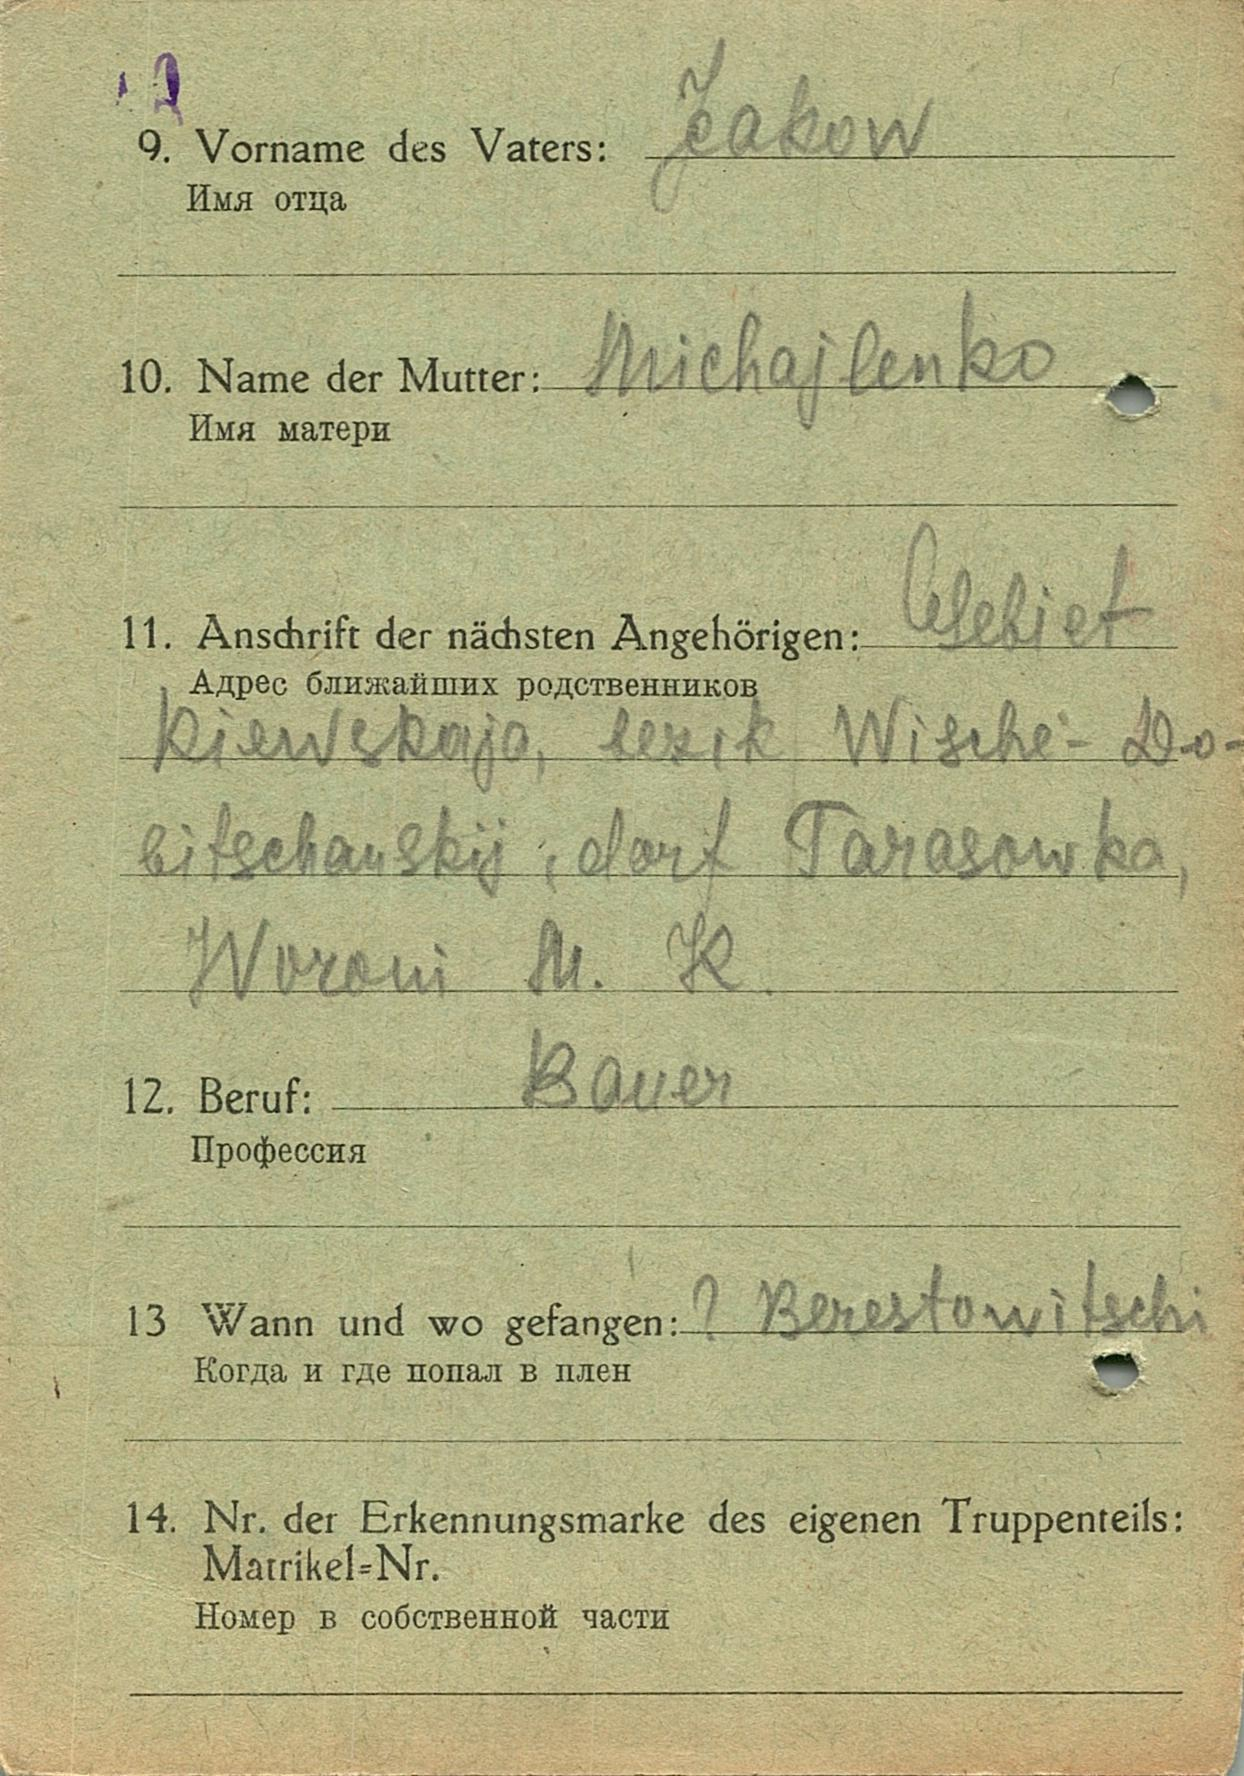 9. Vorname des Vaters: Jakow
Имя отца
10. Name der Mutter: Michajlenko
Имя матери
11. Anschrift der nächsten Angehörigen: Gebiet
Адрес ближайших родственников
Kiewskaja, bezik Wische-Do-
bitschanskij, dorf Tarasowka,
Woroni M. K.
12. Beruf: Bauer
Профессия
13 Wann und wo gefangen: ? Berestowitschi
Когда и где попал в плен
14. Nr. der Erkennungsmarke des eigenen Truppenteils:
Matrikel=Nr.
Номер в собственной части